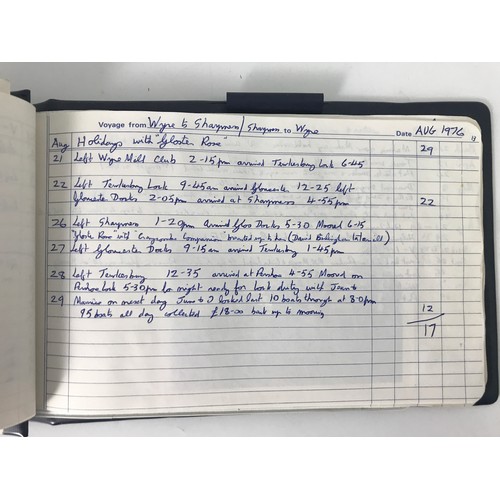 Voyage from Wyre to Sharpness / Sharpness to Wyre Date AUG 1976
Aug Holidays with "Gloster Rose" 29
21 Left Wyre Mill Club 2-15pm arrived Tewkesbury Lock 6-45
22 Left Tewkesbury Lock 9-45am arrived Gloucester 12-25 left
Gloucester Docks 2-05pm arrived at Sharpness 4-55pm 22
26 Left Sharpness 1-20pm Arrived Glos Docks 5-30 Moored 6-15
"Gloster Rose" with Companion up to her (David
27 Left Gloucester Docks 9-15am arrived Tewkesbury 1-45pm
28 Left Tewkesbury 12-35 arrived at Pershore 4-55 Moored on
Pershore Lock 5-30pm for night ready for lock duty with Jean &
29 Maurice on next day June & I locked last 10 boats through at 8-0pm 12
95 boats all day collected £18-00 back up to mooring 17